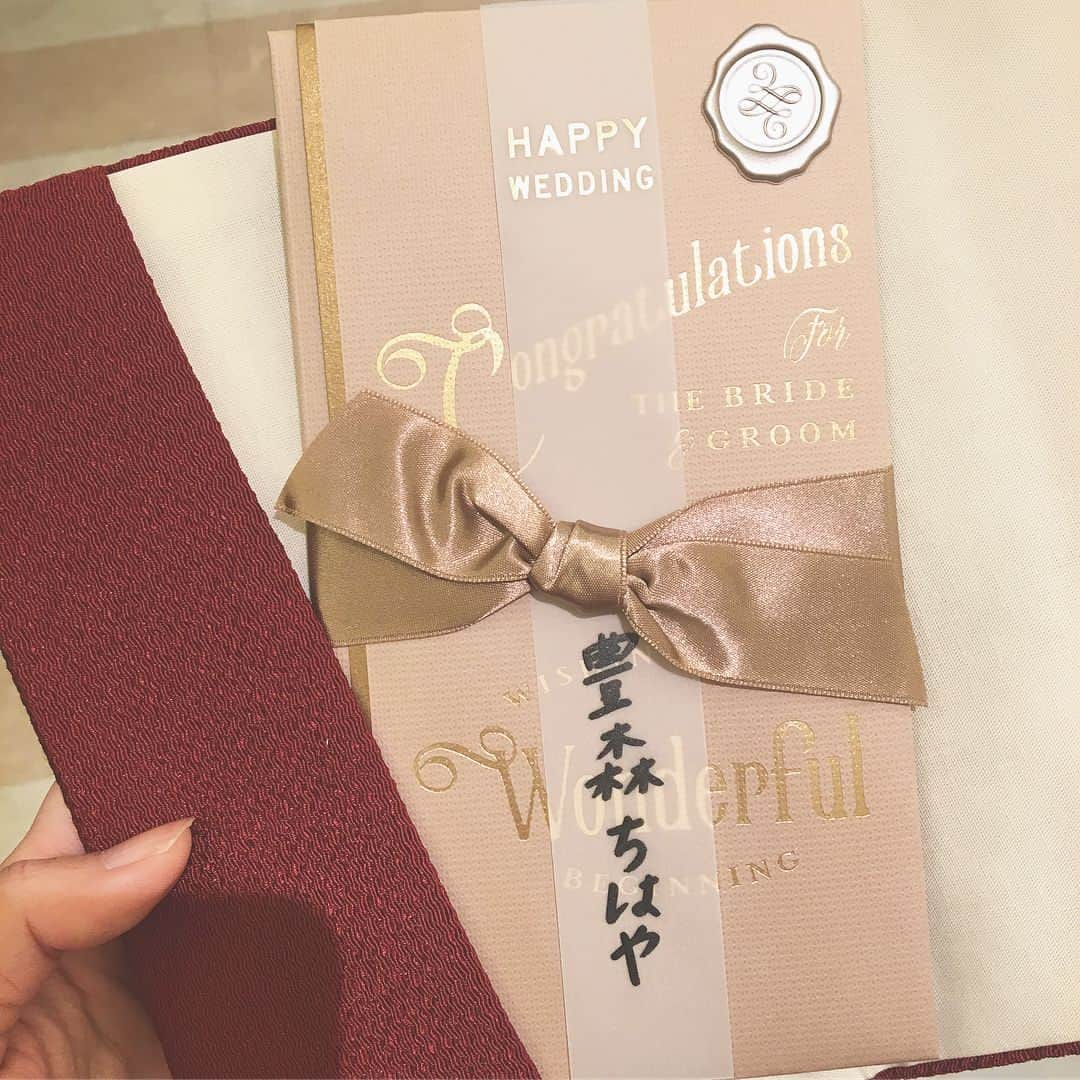 HAPPY
WEDDING
Congratulations
For
THE BRIDE
& GROOM
Wonderful
BEGINNING
豊森ちはや